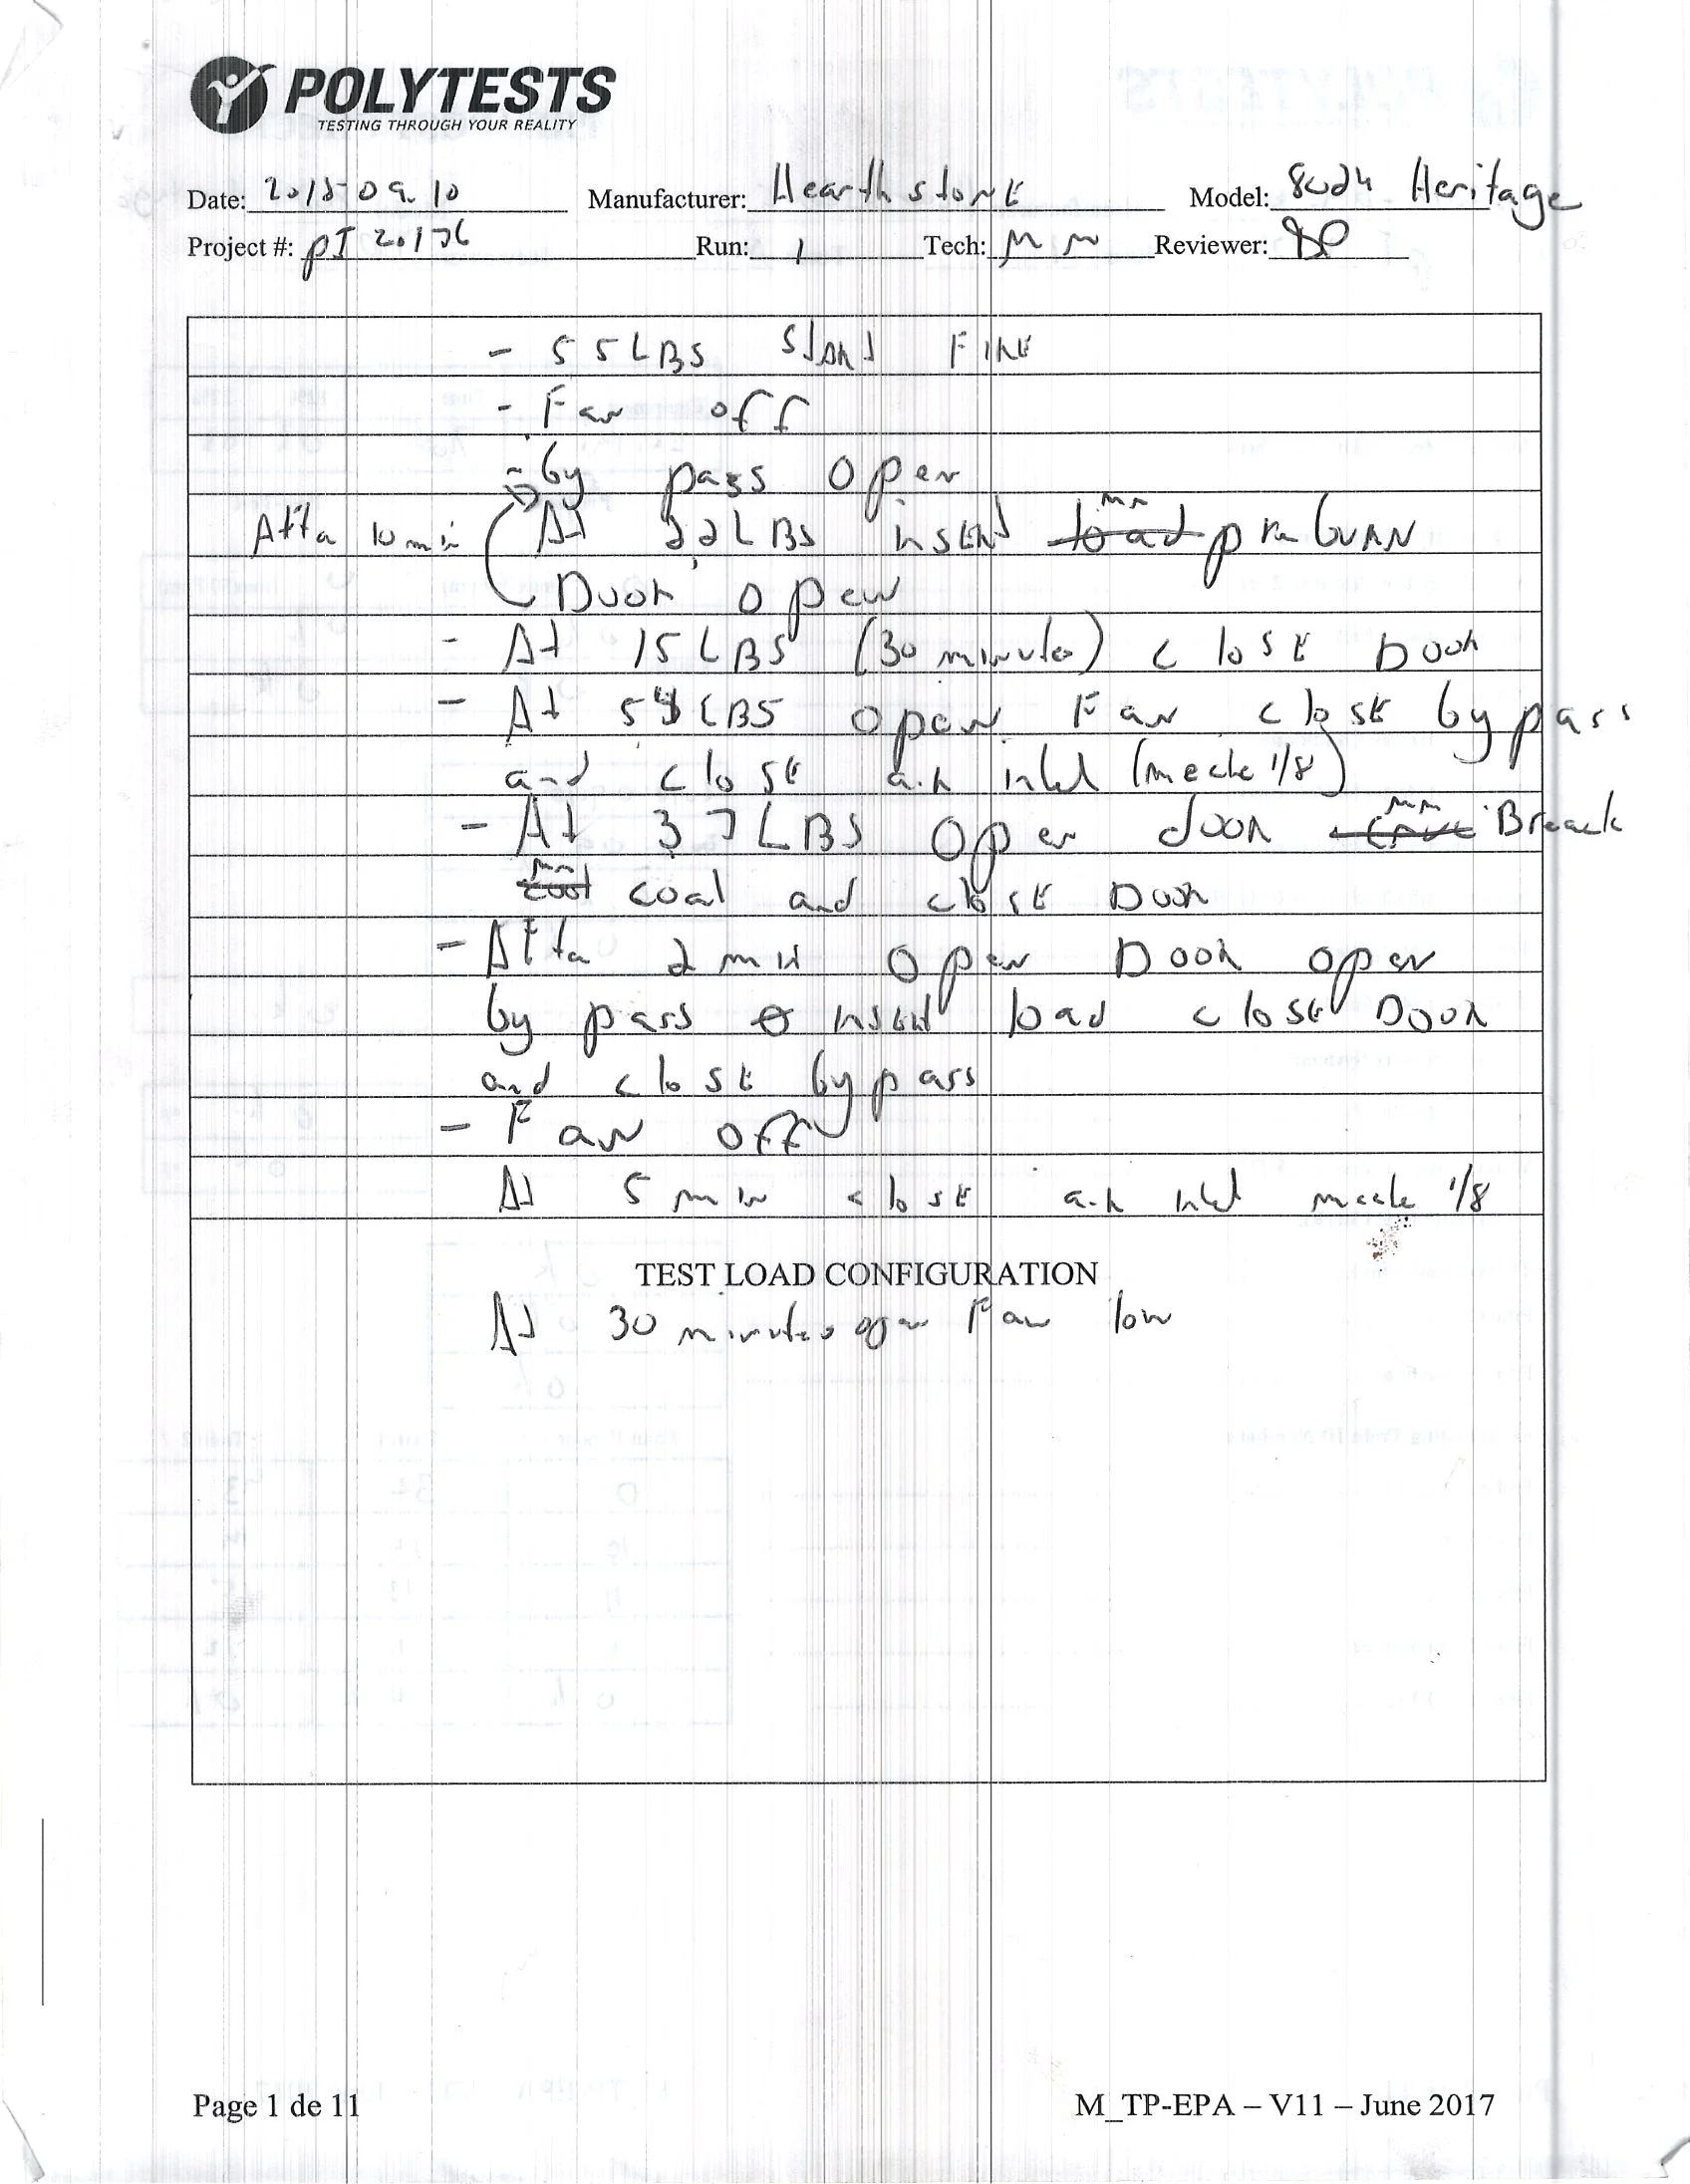 POLYTESTS
TESTING THROUGH YOUR REALITY
Date: 2018-09.10 Manufacturer: HearthstoNE Model: 8024 Heritage
Project #: pI 20176 Run: 1 Tech: MM Reviewer:
- 55 LBS StaRt FIRE
- Fan off
- by pass open
After 10 min At 22 LBS insert load mm preburn
Door open
- At 15 LBS (30 minutes) close Door
- At 54 LBS open Fan close by pass
and close air inlet (mecke 1/8)
- At 37 LBS open door mm Breack
mm coal and close Door
- After 2 min open Door open
by pass insert load close Door
and close by pass
- Fan off
At 5 min close air inlet mecke 1/8
TEST LOAD CONFIGURATION
At 30 minutes open Fan low
Page 1 de 11 M_TP-EPA – V11 – June 2017